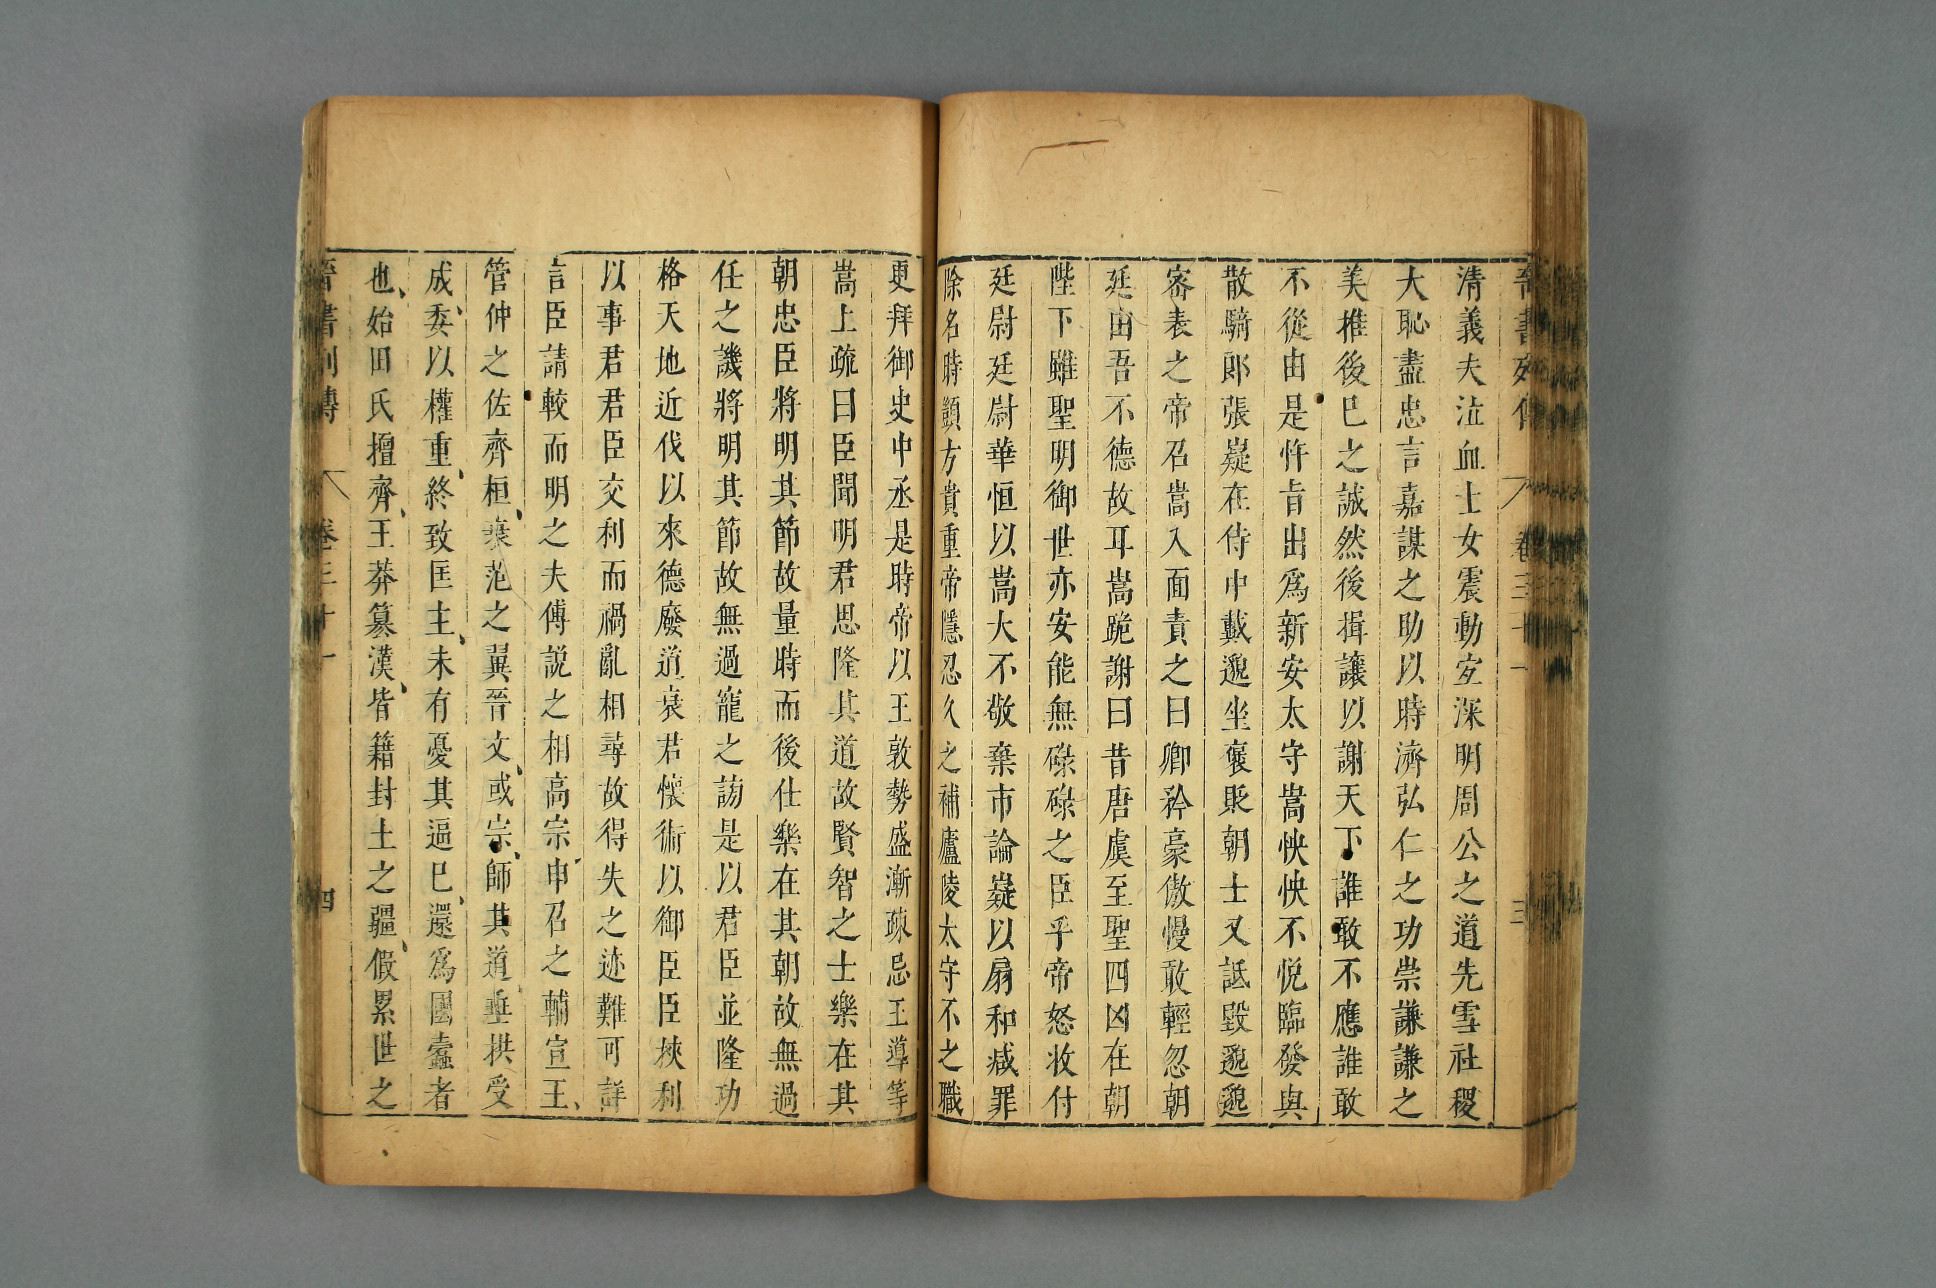 晉書列傳 卷三十一 三
清義夫泣血士女震動宜深明周公之道先雪社稷
大恥盡忠言嘉謀之助以時濟弘仁之功崇謙謙之
美推後已之誠然後揖讓以謝天下誰敢不應誰敢
不從由是忤旨出爲新安太守嵩怏怏不悅臨發與
散騎郎張嶷在侍中戴邈坐褒貶朝士又詆毀邈邈
密表之帝召嵩入面責之曰卿矜豪傲慢敢輕忽朝
廷由吾不德故耳嵩跪謝曰昔唐虞至聖四凶在朝
陛下雖聖明御世亦安能無碌碌之臣乎帝怒收付
廷尉廷尉華恒以嵩大不敬棄市論嶷以扇和减罪
除名時顗方貴重帝隱忍久之補廬陵太守不之職
更拜御史中丞是時帝以王敦勢盛漸疎忌王導等
嵩上疏曰臣聞明君思隆其道故賢智之士樂在其
朝忠臣將明其節故量時而後仕樂在其朝故無過
任之譏將明其節故無過寵之謗是以君臣並隆功
格天地近伐以來德廢道衰君懷術以御臣臣挾利
以事君君臣交利而禍亂相尋故得失之迹難可詳
言臣請較而明之夫傅説之相高宗申召之輔宣王
管仲之佐齊桓衰范之翼晉文或宗師其道垂拱受
成委以權重終致匡主未有憂其逼已還爲國蠹者
也始田氏擅齊王莽篡漢皆籍封土之疆假累世之
晉書列傳 卷三十一 四